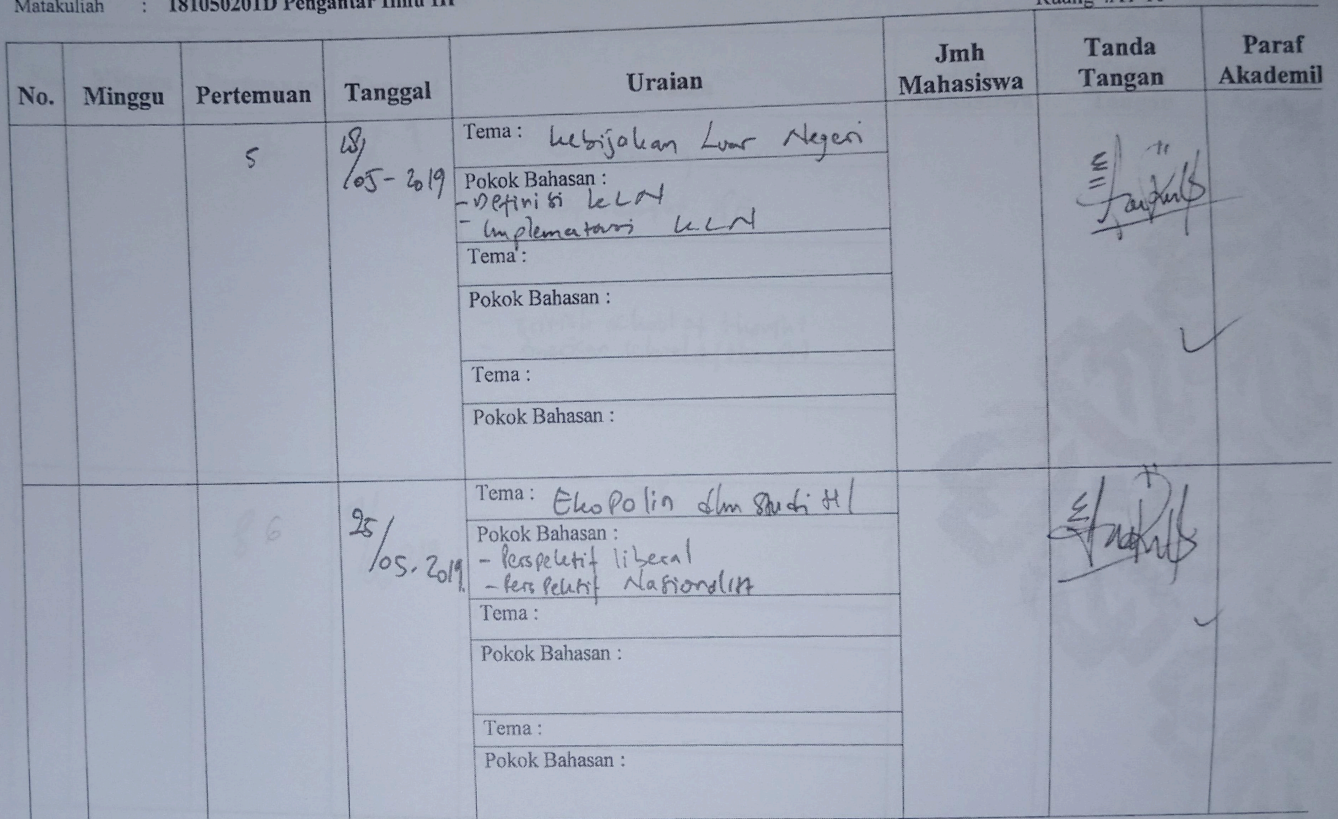 Matakuliah : 181050201D Pengantar Ilmu HI
No. Minggu Pertemuan Tanggal Uraian Jmh Mahasiswa Tanda Tangan Paraf Akademil
5
18/05-2019
Tema : Kebijakan Luar Negeri
Pokok Bahasan :
- Definisi KLN
- Implematasi KLN
Tema :
Pokok Bahasan :
Tema :
Pokok Bahasan :
25/05.2019
Tema : EkoPolin dlm Studi HI
Pokok Bahasan :
- Perspektif liberal
- Perspektif Nasionalist
Tema :
Pokok Bahasan :
Tema :
Pokok Bahasan :